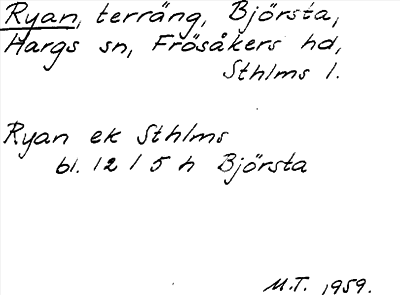 Ryan, terräng, Björsta,
Hargs sn, Frösåkers hd,
Sthlms l.
Ryan ek Sthlms
bl. 12 1 5 h Björsta
M.T. 1959.